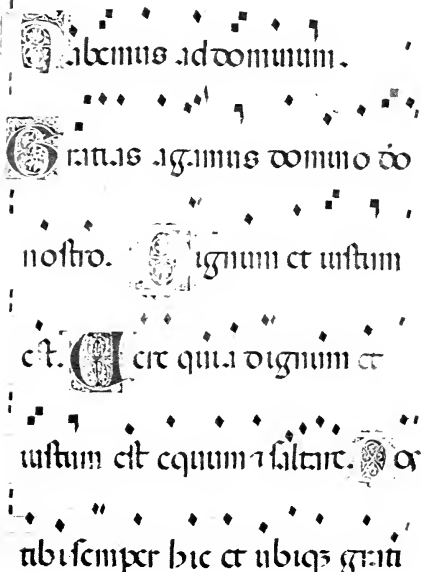 Habemus ad dominum.
Gratias agamus domino do
nostro. Dignum et iustum
est. Vere quia dignum et
iustum est equum ⁊ salutare. Nos
tibi semper hic et ubiqꝫ grati